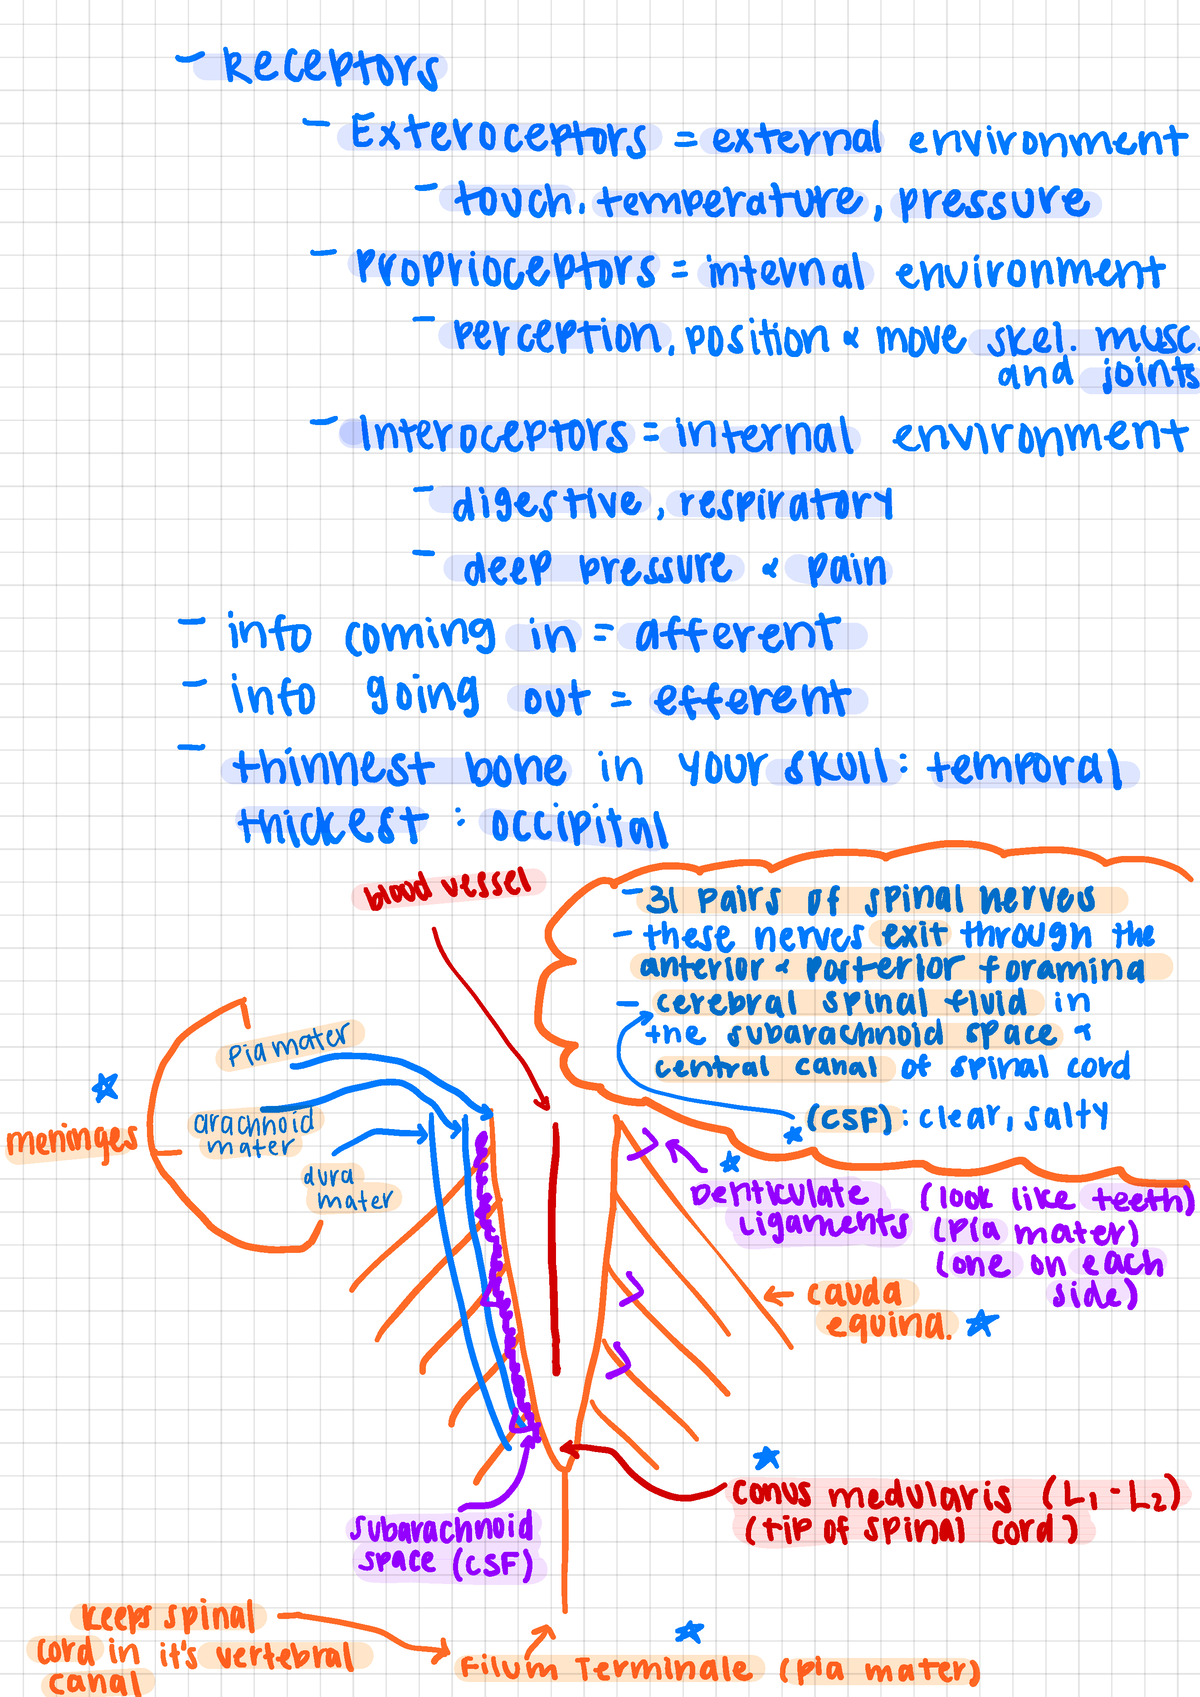 - Receptors
- Exteroceptors = external environment
- touch, temperature, pressure
- Proprioceptors = internal environment
- perception, position & move skel. musc.
and joints
- Interoceptors = internal environment
- digestive, respiratory
- deep pressure & pain
- info coming in = afferent
- info going out = efferent
- thinnest bone in your skull: temporal
thickest: occipital
blood vessel
- 31 pairs of spinal nerves
- these nerves exit through the
anterior & posterior foramina
- cerebral spinal fluid in
the subarachnoid space &
central canal of spinal cord
(CSF): clear, salty
pia mater
arachnoid
mater
meninges
dura
mater
Denticulate (look like teeth)
ligaments (pia mater)
(one on each
side)
cauda
equina.
conus medularis (L1-L2)
(tip of spinal cord)
subarachnoid
space (CSF)
keeps spinal
cord in it's vertebral
canal
Filum Terminale (pia mater)